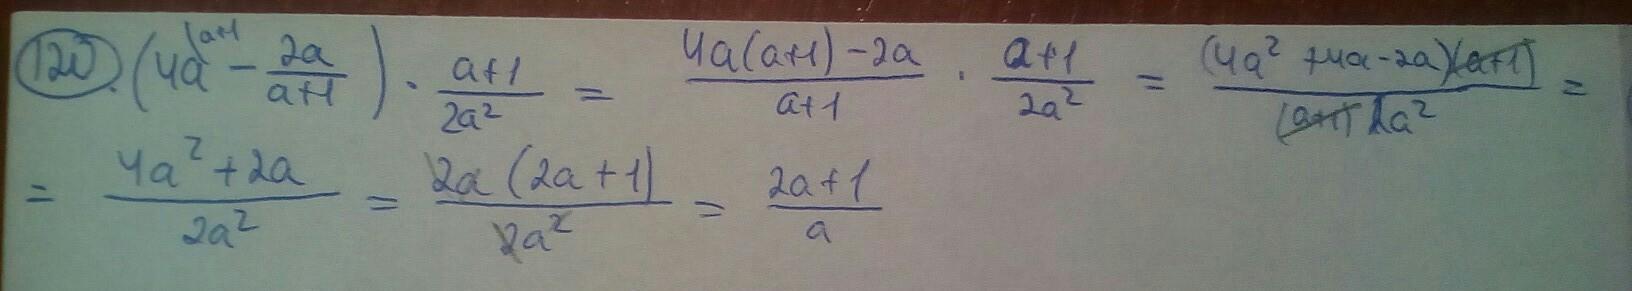 120. (4a^(a+1 - 2a/(a+1)) · (a+1)/(2a²) = (4a(a+1) - 2a)/(a+1) · (a+1)/(2a²) = ((4a² + 4a - 2a)(a+1))/((a+1) 2a²) =
= (4a² + 2a)/(2a²) = (2a(2a+1))/(2a²) = (2a+1)/a